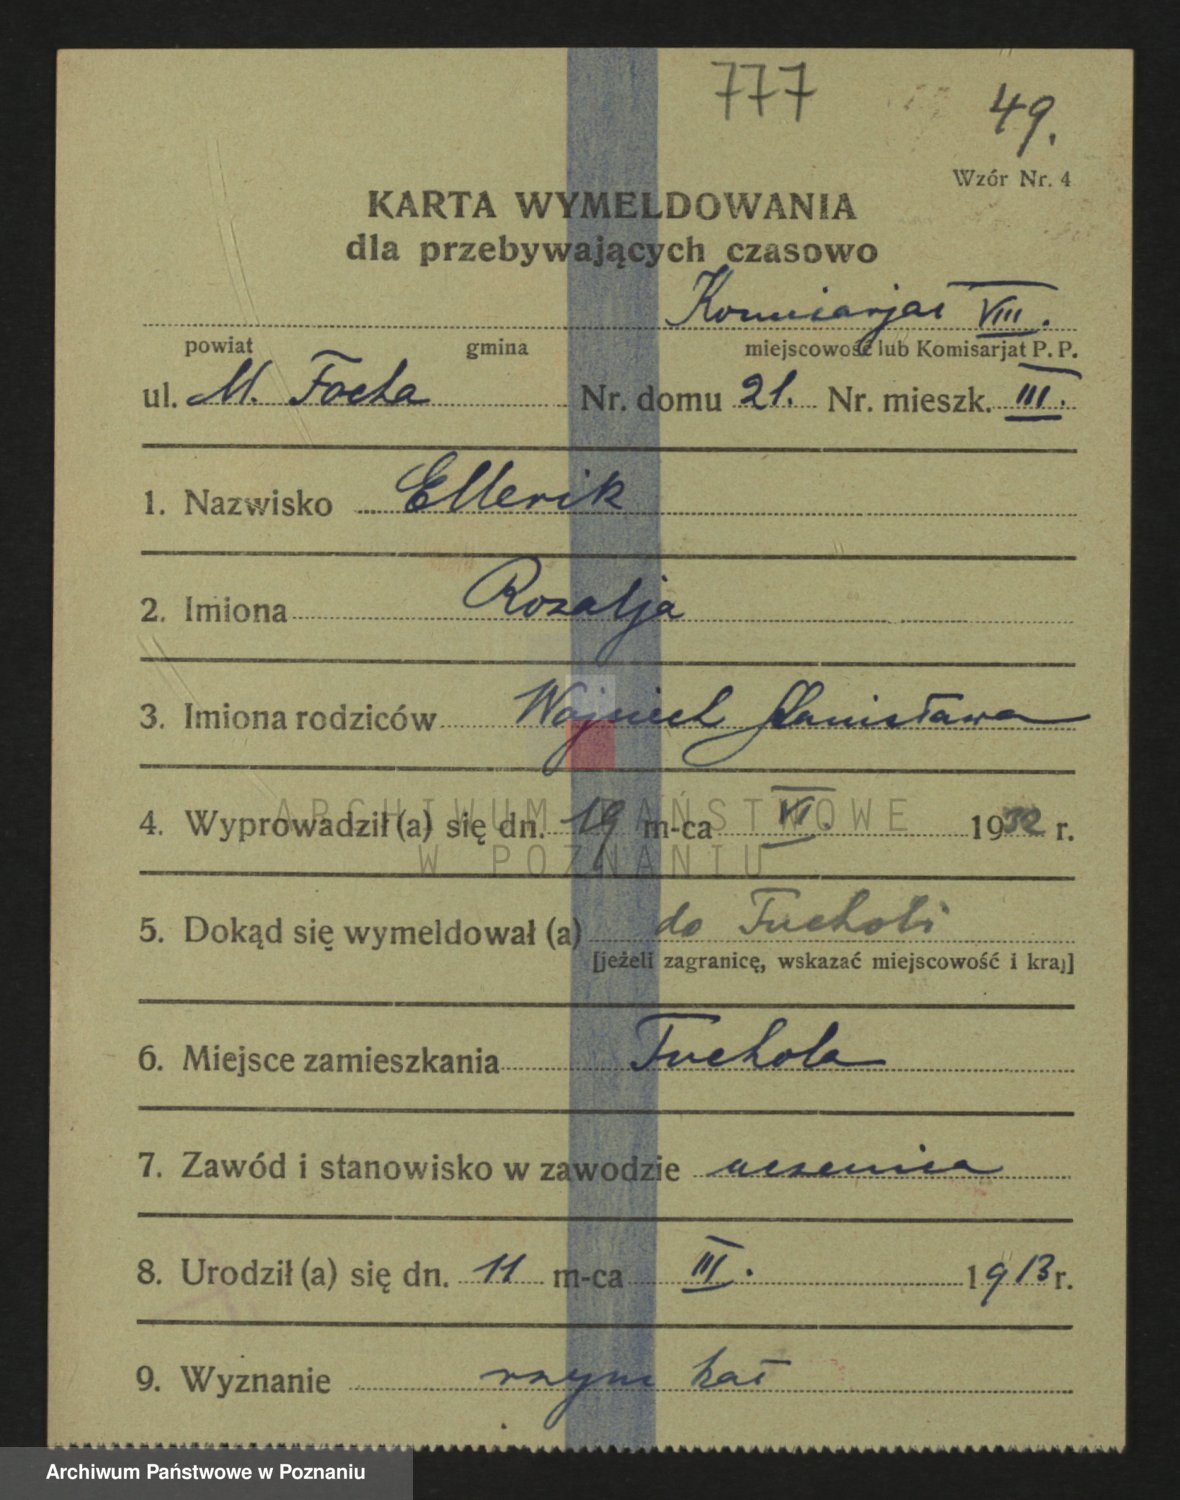 777
49.
Wzór Nr. 4
KARTA WYMELDOWANIA
dla przebywających czasowo
Komisarjat VIII.
powiat gmina miejscowość lub Komisarjat P. P.
ul. M. Focha Nr. domu 21. Nr. mieszk. III.
1. Nazwisko Ellerik
2. Imiona Rozalja
3. Imiona rodziców Wojciech Stanisława
ARCHIWUM PAŃSTWOWE
4. Wyprowadził (a) się dn. 19 m-ca VI. 1932 r.
W POZNANIU
5. Dokąd się wymeldował (a) do Tucholi
[jeżeli zagranicę, wskazać miejscowość i kraj]
6. Miejsce zamieszkania Tuchola
7. Zawód i stanowisko w zawodzie uczenica
8. Urodził (a) się dn. 11 m-ca III. 1913 r.
9. Wyznanie rzym kat
Archiwum Państwowe w Poznaniu